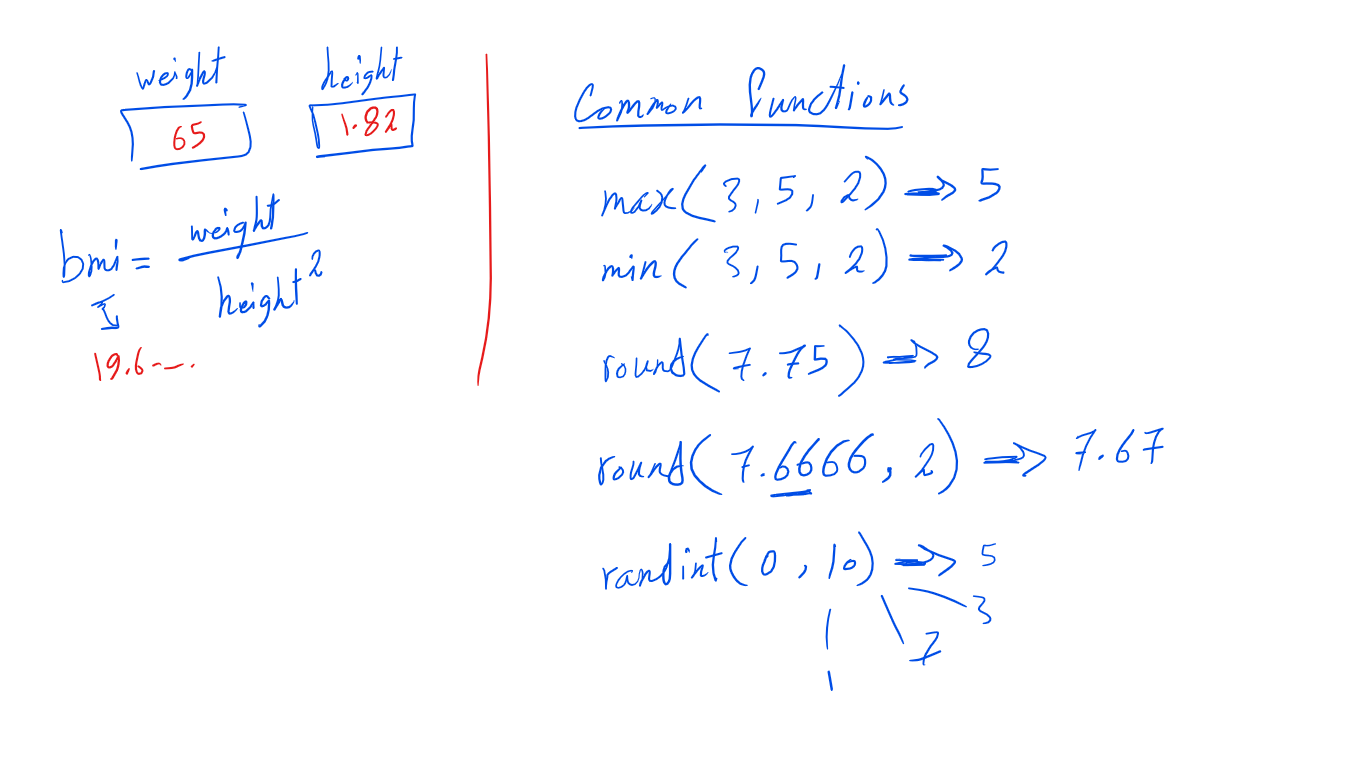 weight height
65 1.82
bmi = weight / height²
19.6---.
Common functions
max( 3, 5, 2) => 5
min( 3, 5, 2) => 2
round( 7.75 ) => 8
round( 7.6666, 2) => 7.67
randint( 0 , 10) => 5
3
7
1